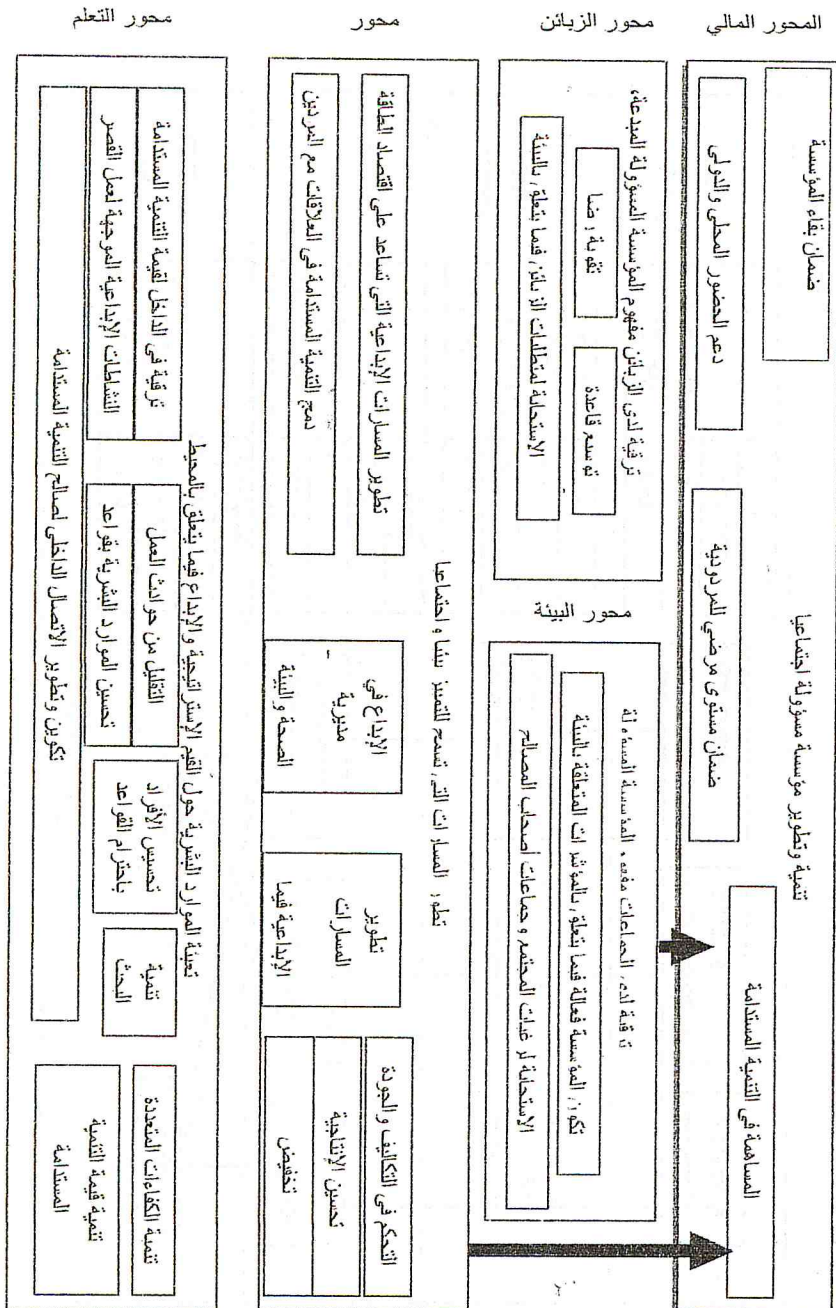 المحور المالي
تنمية وتطوير مؤسسة مسؤولة اجتماعيا
ضمان بقاء المؤسسة
دعم الحضور المحلي والدولي
ضمان مستوى مرضي للمردودية
المساهمة في التنمية المستدامة
محور الزبائن
ترقية لدى الزبائن مفهوم المؤسسة المسؤولة المبدعة،
تقوية رضا
توسيع قاعدة
الاستجابة لمتطلبات الزبائن فيما يتعلق بالبيئة
محور البيئة
ترقية لدى الجماعات مفهوم المؤسسة المسؤولة
تكون المؤسسة فعالة فيما يتعلق بالمؤشرات المتعلقة بالبيئة
الاستجابة لرغبات المجتمع وجماعات أصحاب المصالح
محور
تطوير المسارات التي تسمح للتميز بيئيا واجتماعيا
تطوير المسارات الإبداعية التي تساعد على اقتصاد الطاقة
دمج التنمية المستدامة في العلاقات مع الموردين
الإبداع في
مديرية
الصحة والبيئة
تطوير
المسارات
الإبداعية فيما
التحكم في التكاليف والجودة
تحسين الإنتاجية
تخفيض
محور التعلم
تعبئة الموارد البشرية حول القيم الإستراتيجية والإبداع فيما يتعلق بالمحيط
ترقية في الداخل لقيمة التنمية المستدامة
النشاطات الإبداعية الموجهة لعمل القصر
التقليل من حوادث العمل
تحسين الموارد البشرية بقواعد
تحسيس الأفراد
باحترام القواعد
تنمية
البحث
تكوين وتطوير الاتصال الداخلي لصالح التنمية المستدامة
تنمية الكفاءات المتعددة
تنمية قيمة التنمية
المستدامة